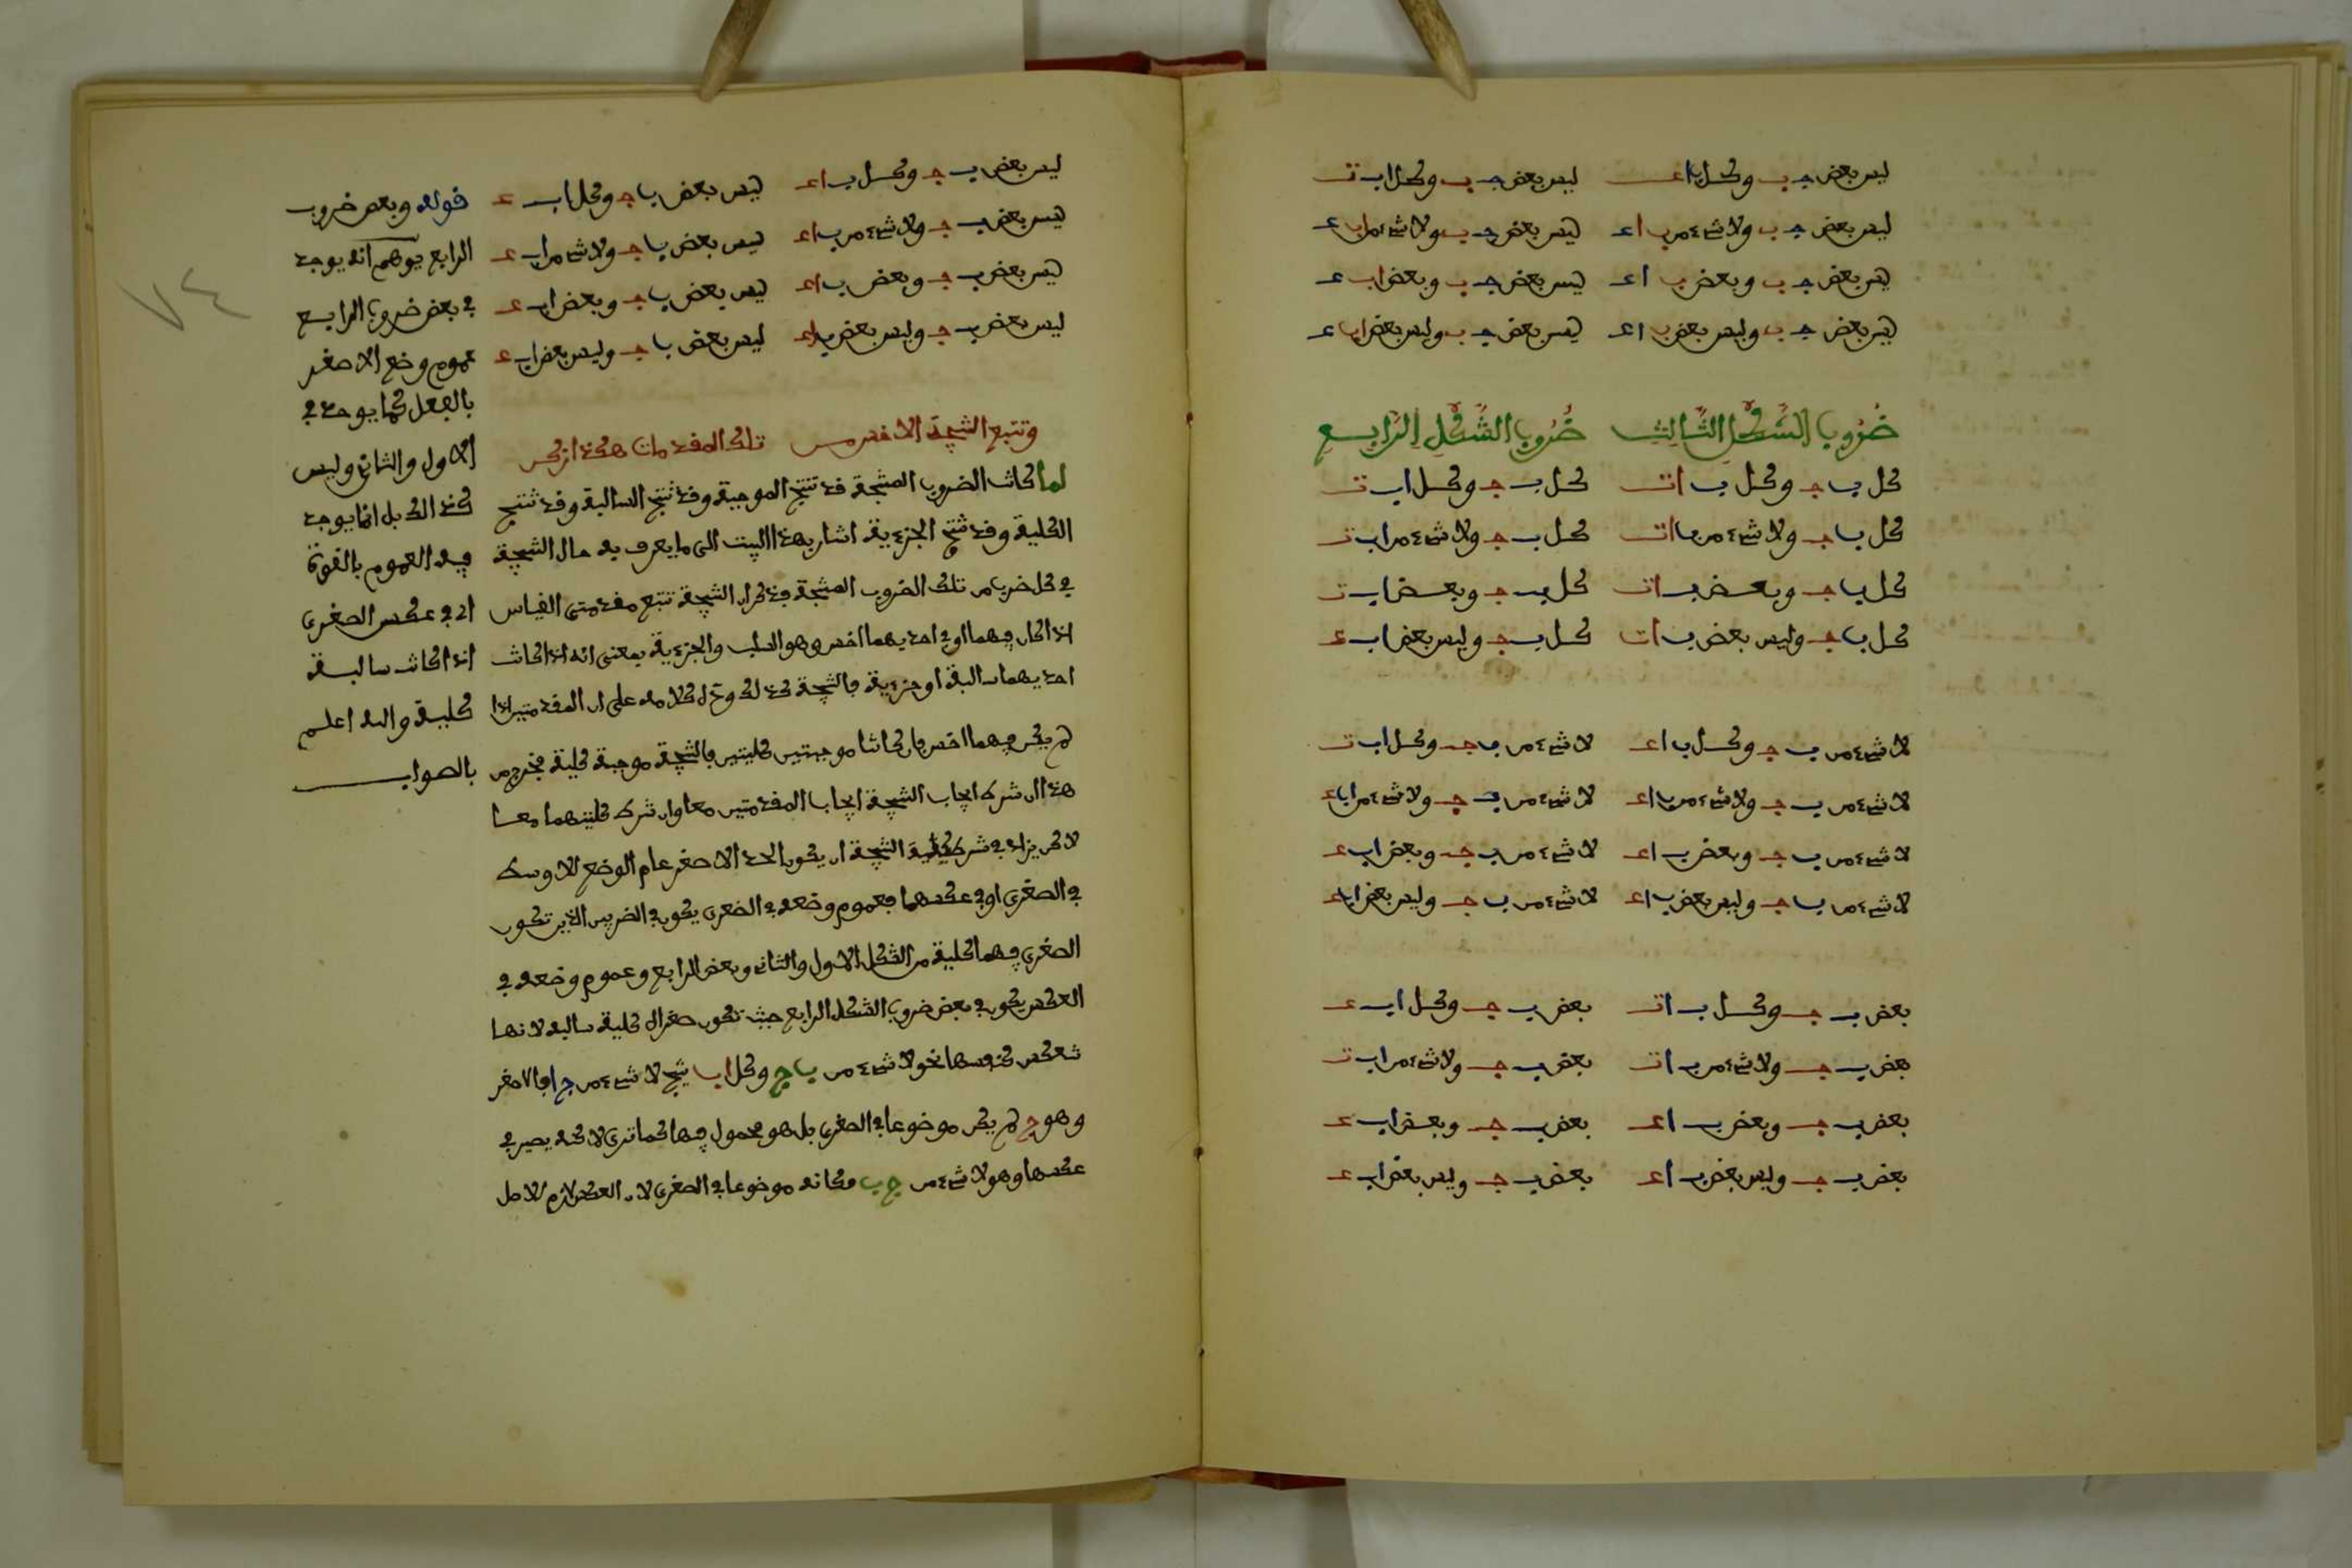 ليس بعض ج ب وكل ب ا عـ ليس بعض ج ب وكل ا ب تـ
ليس بعض ج ب ولا شيء من ب ا عـ ليس بعض ج ب ولا شيء من ا ب عـ
ليس بعض ج ب وبعض ب ا عـ ليس بعض ج ب وبعض ا ب عـ
ليس بعض ج ب وليس بعض ب ا عـ ليس بعض ج ب وليس بعض ا ب عـ
ضُرُوب الشَّكْلِ الثَّالِث ضُرُوب الشَّكْلِ الرَّابِع
كل ب ج وكل ب ا تـ كل ب ج وكل ا ب تـ
كل ب ج ولا شيء من ب ا تـ كل ب ج ولا شيء من ا ب تـ
كل ب ج وبعض ب ا تـ كل ب ج وبعض ا ب تـ
كل ب ج وليس بعض ب ا ت كل ب ج وليس بعض ا ب عـ
لا شيء من ب ج وكل ب ا عـ لا شيء من ب ج وكل ا ب تـ
لا شيء من ب ج ولا شيء من ب ا عـ لا شيء من ب ج ولا شيء من ا ب عـ
لا شيء من ب ج وبعض ب ا عـ لا شيء من ب ج وبعض ا ب عـ
لا شيء من ب ج وليس بعض ب ا عـ لا شيء من ب ج وليس بعض ا ب عـ
بعض ب ج وكل ب ا تـ بعض ب ج وكل ا ب عـ
بعض ب ج ولا شيء من ب ا تـ بعض ب ج ولا شيء من ا ب تـ
بعض ب ج وبعض ب ا عـ بعض ب ج وبعض ا ب عـ
بعض ب ج وليس بعض ب ا عـ بعض ب ج وليس بعض ا ب عـ
ليس بعض ب ج وكل ب ا عـ ليس بعض ب ج وكل ا ب عـ
ليس بعض ب ج ولا شيء من ب ا عـ ليس بعض ب ج ولا شيء من ا ب عـ
ليس بعض ب ج وبعض ب ا عـ ليس بعض ب ج وبعض ا ب عـ
ليس بعض ب ج وليس بعض ب ا عـ ليس بعض ب ج وليس بعض ا ب عـ
وتتبع النتيجة الاخس من تلك المقدمات هكذا زكن
لما كانت الضروب المنتجة قد تنتج الموجبة وقد تنتج السالبة وقد تنتج
الكلية وقد تنتج الجزءية اشار بهذا البيت الى ما يعرف به حال النتيجة
في كل ضرب من تلك الضروب المنتجة فذكر ان النتيجة تتبع مقدمتي القياس
اذا كان فيهما او في احديهما اخس وهو السلب والجزءية بمعنى انه اذا كانت
احديهما سالبة او جزءية فالنتيجة كذلك ودل كلامه على ان المقدمتين اذا
لم يكن فيهما اخس فان كانتا موجبتين كليتين فالنتيجة موجبة كلية فخرج من
هذا ان شرط ايجاب النتيجة ايجاب المقدمتين معا وان شرط كليتهما معا
لاكن يزاد في شرط كلية النتيجة ان يكون الحد الاصغر عام الوضع للاوسط
في الصغرى او في عكسها فعموم وضعه في الصغرى يكون في الضربين الذين تكون
الصغرى فيهما كلية من الشكل الاول والثاني وبعض الرابع وعموم وضعه في
العكس يكون في بعض ضروب الشكل الرابع حيث تكون صغراه كلية سالبة لانها
تنعكس كنفسها نحو لا شيء من ب ج وكل ا ب ينتج لا شيء من ج ا فالاصغر
وهو ج لم يكن موضوعا في الصغرى بل هو محمول فيها كما ترى لاكنه يصير في
عكسها وهو لا شيء من ج ب فكانه موضوعا في الصغرى لان العكس لازم للاصل
قوله وبعض ضروب
الرابع يوهم انه يوجد
في بعض ضروب الرابع
عموم وضع الاصغر
بالفعل كما يوجد في
الاول والثاني وليس
كذالك بل انما يوجد
فيه العموم بالقوة
اي في عكس الصغرى
اذا كانت سالبة
كلية والله اعلم
بالصواب
٧٤